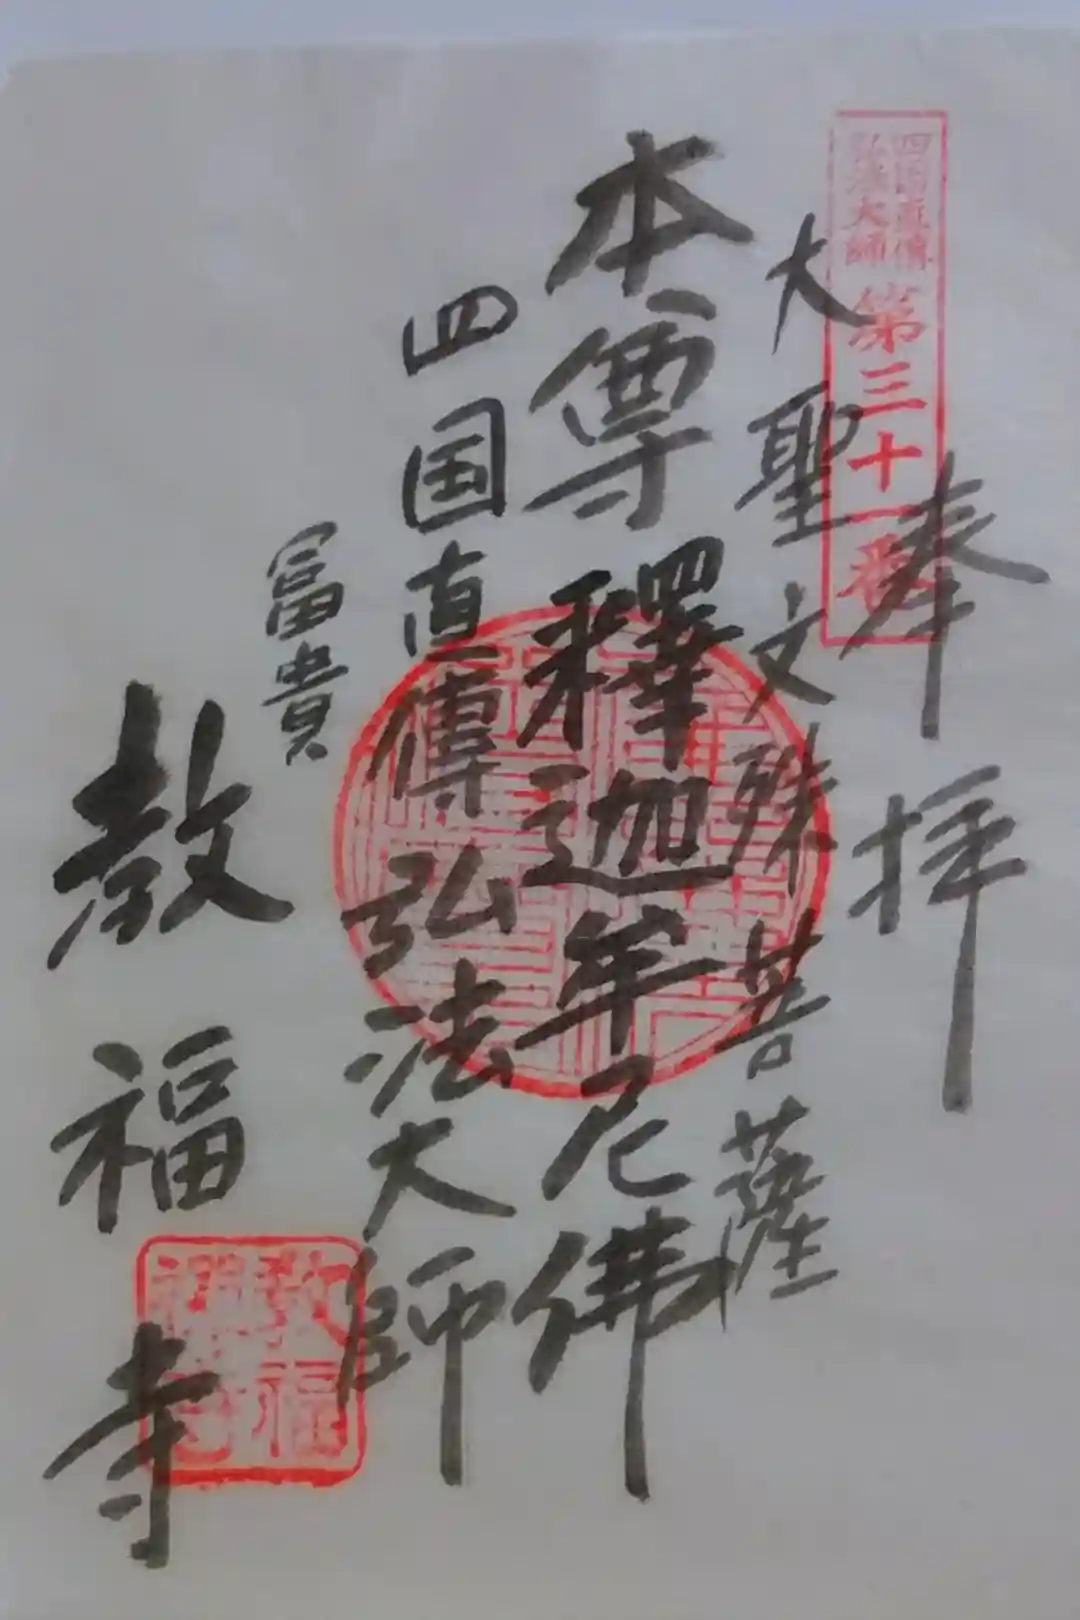 四国直傳
弘法大師
第三十一番
奉拝
大聖文殊菩薩
本尊釋迦牟尼佛
四国直傳弘法大師
富貴
教福寺
教福
禅寺